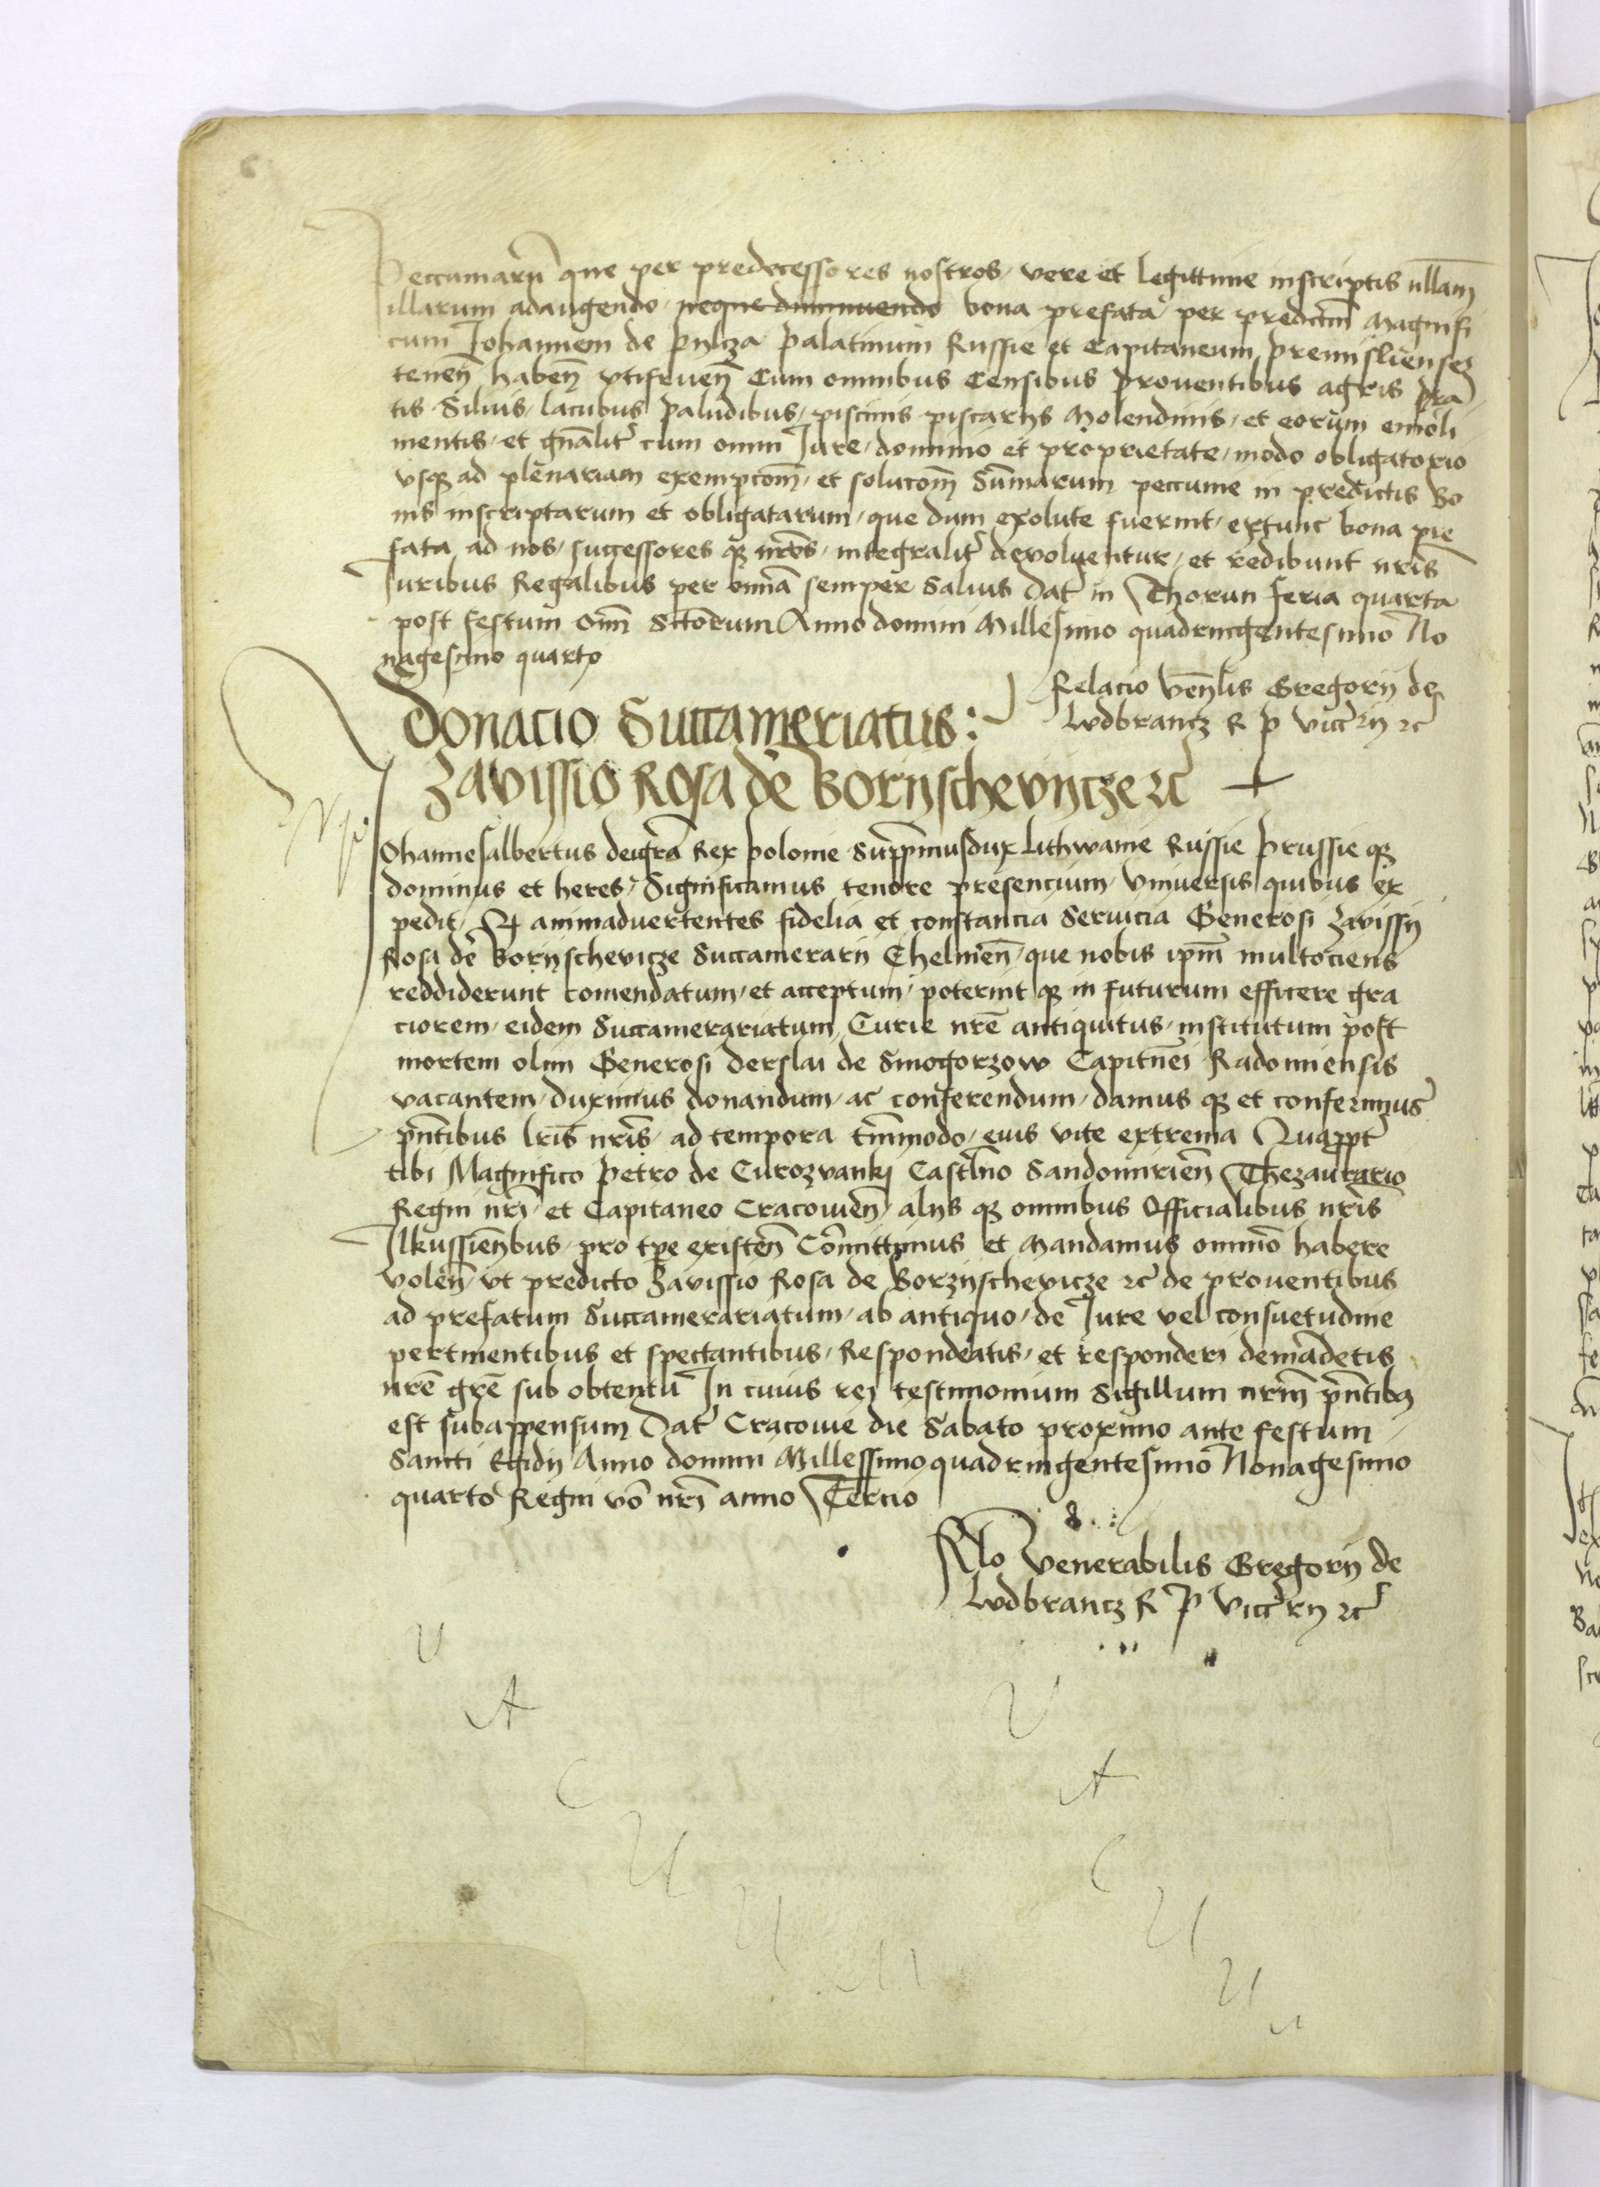 Peccuniarū que per predecessores nostros vere et legittime inscriptis ullam
illarum adaugendo neque diminuendo bona prefata per predictm̄ Magnifi
cum Johannem de pylcza palatinum Russie et Capitaneum premislienseȝ
tenen̄ haben̄ vtifruen̄ Cum omnibus Censibus prouentibus agris pra
tis Siluis lacubus paludibus piscinis piscariis Molendinis et eorum emoli
mentis et gn̄alit̄ cum omni Jure dominio et proprietate modo obligatorio
vsqȝ ad plenariam exempcōm̄ et solucōm̄ Sum̄arum peccunie in predictis Bo
nis inscriptarum et obligatarum que dum exolute fuerint extunc bona pre
fata ad nos successores qȝ nr̄os integralit̄ devoluentur et redibunt nr̄is
Juribus Regalibus per omn̄ia semper Saluis Dat̄ in Thorun feria quarta
post festum Om̄n̄ Sctōrum Anno domini Millesimo quadringentesimo No
nagesimo quarto
Relacio Ven̄lis Gregorij de
lvdbrancz R p vicc̄rij ꝛc̄
Donacio Succameriatus:
Zavissio Rosa de Borijschevijcze ꝛc̄
Johannesalbertus deigr̄a Rex polonie Supp̄musdux Lithwanie Russie prussie qȝ
dominus et heres Significamus tenore presencium Vniuersis quibus ex
pedit Q animaduertentes fidelia et constancia Seruicia Generosi Zavissij
Rosa de Borijschevicze Succamerarij Chelmen̄ que nobis ipm̄ multociens
reddiderunt comendatum et acceptum poterint qȝ in futurum efficere gra
ciorem eidem Succamerariatum Curie nr̄e antiquitus institutum post
mortem olim Generosi Derslai de Smogorzow Capitn̄ei Radomiensis
vacantem duximus donandum ac conferendum damus qȝ et conferimus
pn̄tibus lr̄is nr̄is ad tempora tm̄modo eius vite extrema Quappt̄
tibi Magnifico petro de Curozvankj Castlno Sandomirien̄ Thezaurario
Regni nr̄i et Capitaneo Cracouien̄ alijs qȝ omnibus Officialibus nr̄is
Ilkussien̄bus pro tp̄e existen̄ Com̄ittimus et Mandamus omnio habere
volen̄ vt predicto Zavissio Rosa de Borzijschevicze ꝛc̄ de prouentibus
ad prefatum Succamerariatum ab antiquo de Jure vel consuetudine
pertinentibus et spectantibus Respondeatis et responderi demādetis
nr̄e gr̄e sub obtentu In cuius rei testimonium Sigillum nr̄m pn̄tibȝ
est subappensum Dat̄ Cracouie die Sabato proximo ante festum
Sancti Egidij Anno domini Millessimo quadringentesimo Nonagesimo
quarto Regni vō nr̄i anno Tercio
Rlō Venerabilis Gregorij de
lvdbrancz R P vicc̄rij ꝛc̄
V
A
V
C
A
U
C
U
U
U